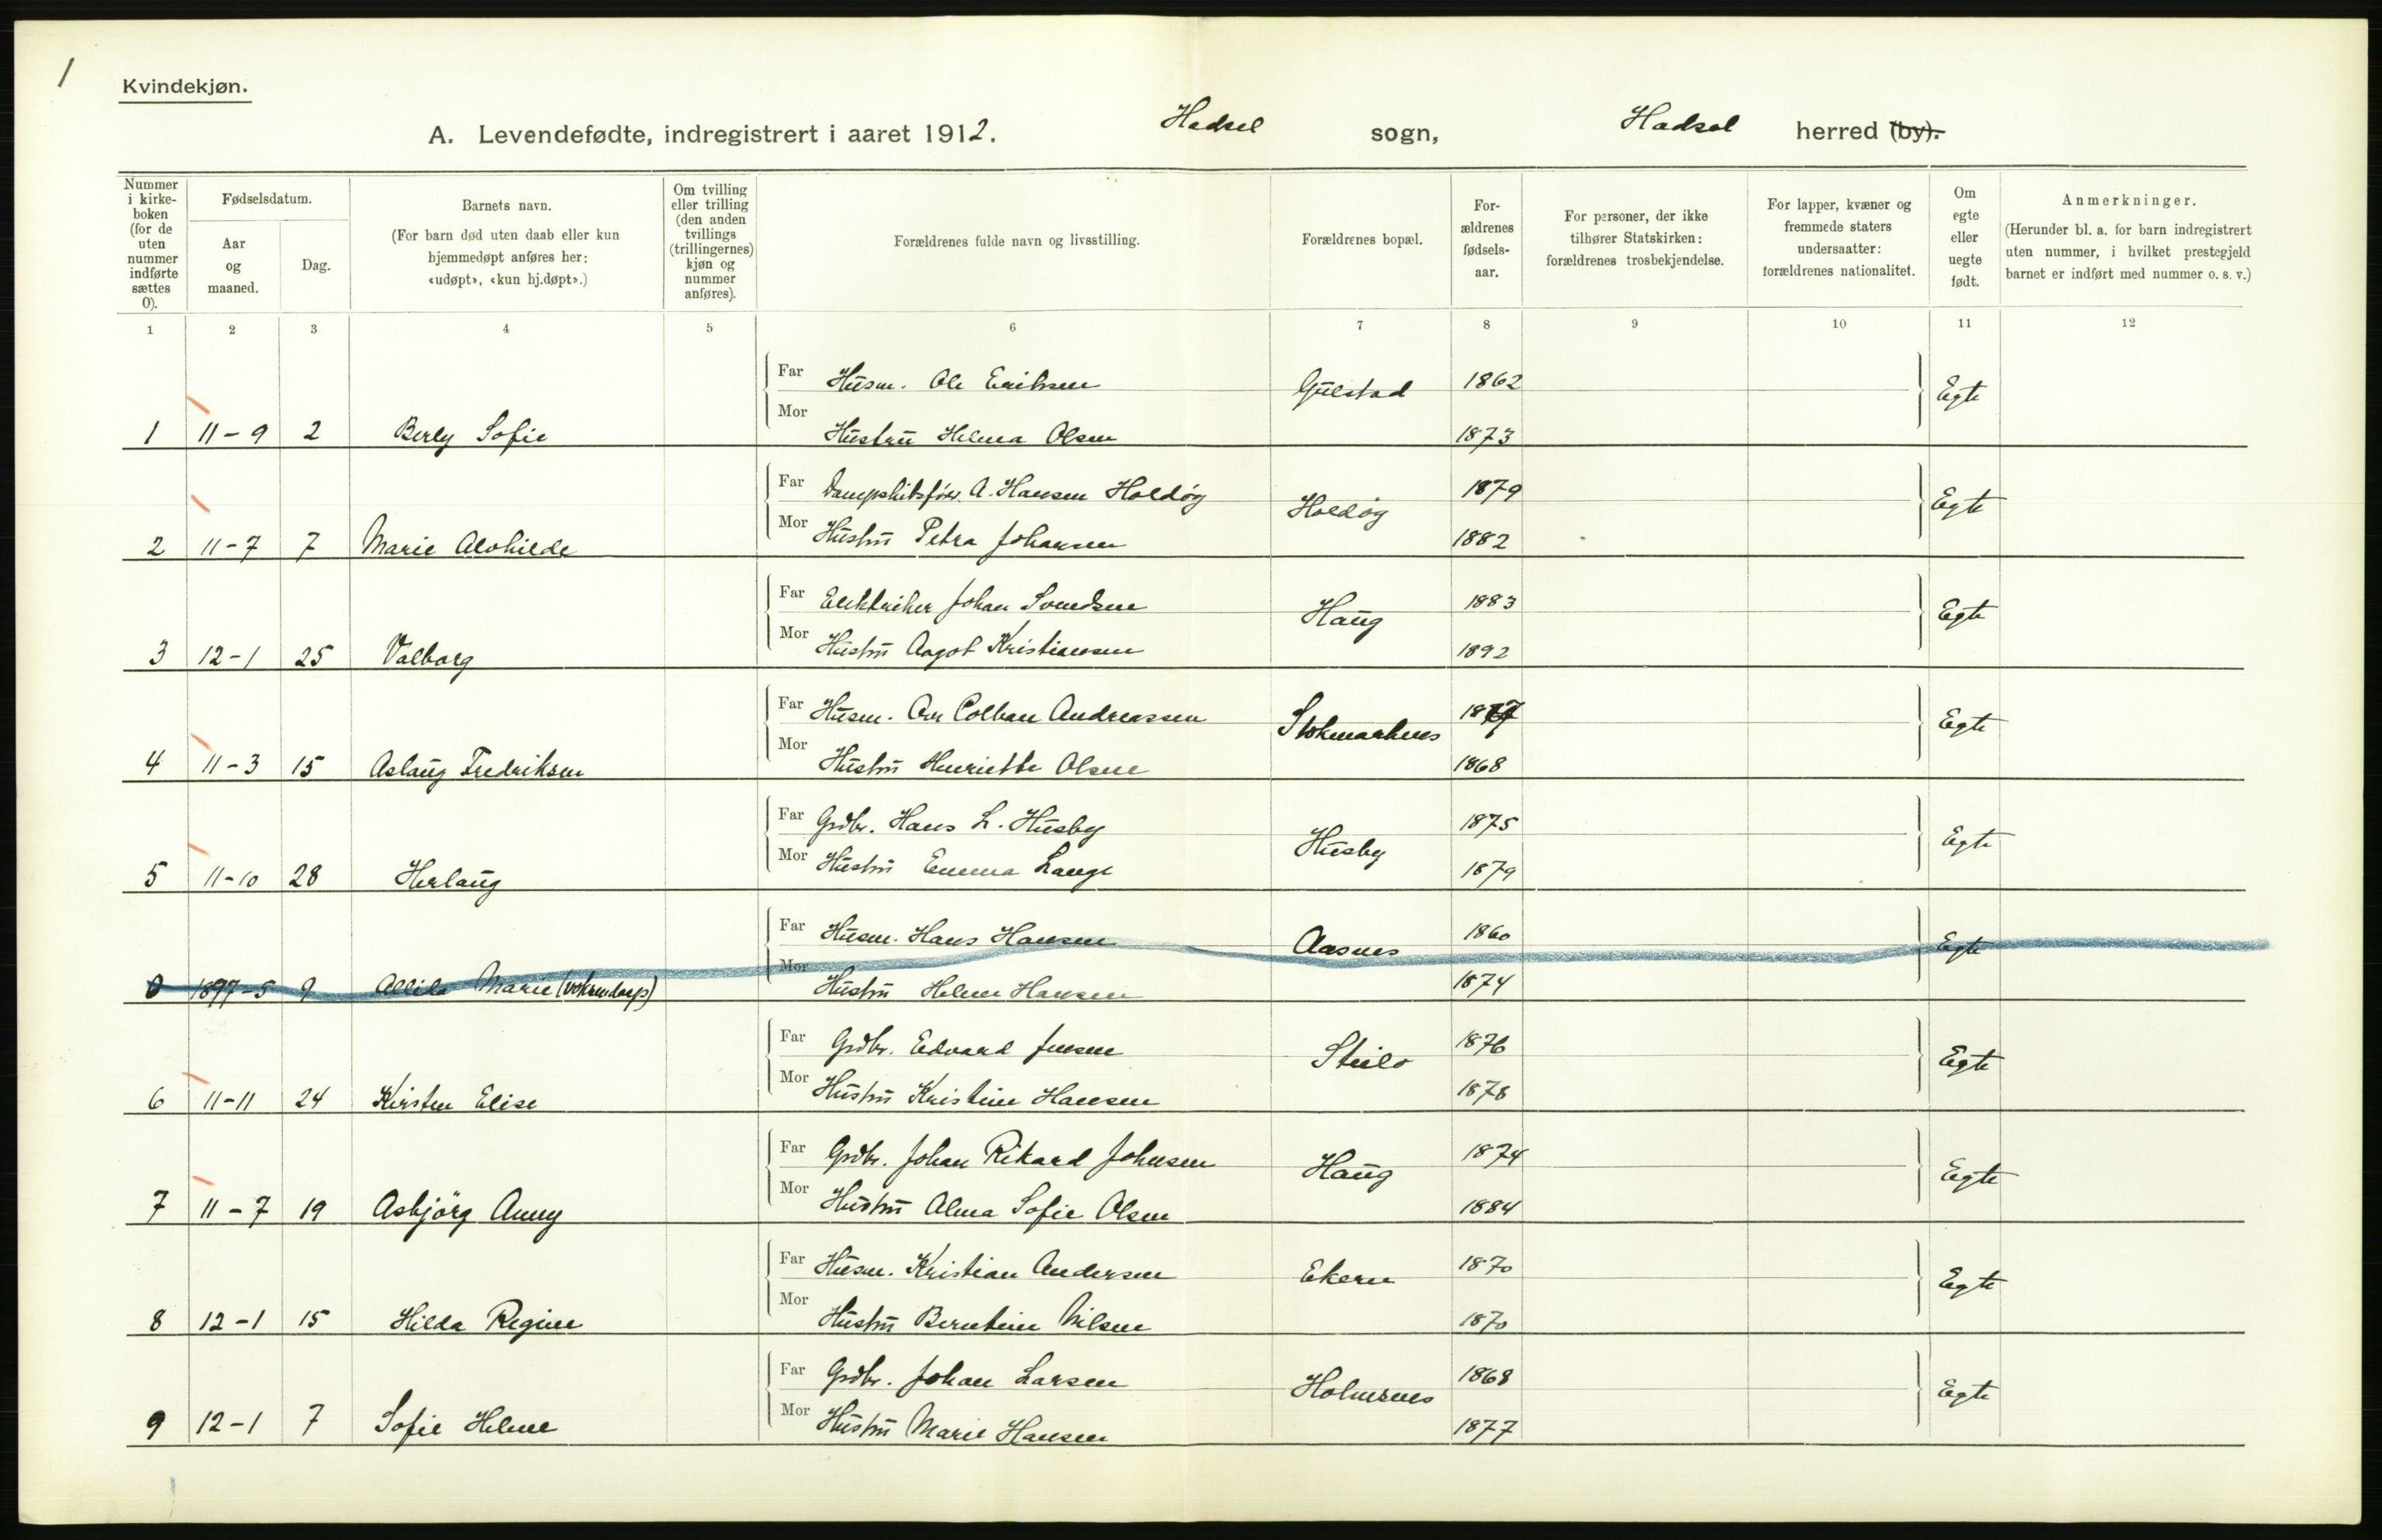 1
Kvindekjøn.
A. Levendefødte, indregistrert i aaret 1912. Hadsel sogn, Hadsel herred (by).
Nummer i kirke-boken (for de uten nummer indførte sættes 0).
Fødselsdatum.
Aar og maaned.
Dag.
Barnets navn.
(For barn død uten daab eller kun hjemmedøpt anføres her: «udøpt», «kun hj.døpt».)
Om tvilling eller trilling (den anden tvillings (trillingernes) kjøn og nummer anføres).
Forældrenes fulde navn og livsstilling.
Forældrenes bopæl.
For-ældrenes fødsels-aar.
For personer, der ikke tilhører Statskirken: forældrenes trosbekjendelse.
For lapper, kvæner og fremmede staters undersaatter: forældrenes nationalitet.
Om egte eller uegte født.
Anmerkninger.
(Herunder bl. a. for barn indregistrert uten nummer, i hvilket prestegjeld barnet er indført med nummer o. s. v.)
1 2 3 4 5 6 7 8 9 10 11 12
Far Husm. Ole Eriksen Gulstad 1862 Egte
Mor
1 11-9 2 Berly Sofie Hustru Helma Olsen 1873
Far Dampskibsfører A. Hansen Holdøy Holdøy 1879 Egte
2 11-7 7 Marie Alvhilde Mor Hustru Petra Johansen 1882
Far Elektriker Johan Svendsen Haug 1883 Egte
3 12-1 25 Valborg Mor Hustru Aagot Kristiansen 1892
Far Husm. Colban Andreassen Stokmarknes 1877 Egte
4 11-3 15 Aslaug Fredriksen Mor Hustru Henriette Olsen 1868
Far Grdbr. Hans L. Husby Husby 1875 Egte
5 11-10 28 Herlaug Mor Hustru Emma Lange 1879
Far Husm. Hans Hansen Aasnes 1860 Egte
0 1897-5 9 Marie Mor Hustru Helene Hansen 1874
Far Grdbr. Edvard Jensen Steilo 1876 Egte
6 11-11 24 Kirsten Elise Mor Hustru Kristine Hansen 1878
Far Grdbr. Johan Rikard Johnsen Haug 1874 Egte
7 11-7 19 Asbjörg Anny Mor Hustru Alma Sofie Olsen 1884
Far Husm. Kristian Andersen Ekern 1870 Egte
8 12-1 15 Hilda Regine Mor Hustru Berntine Nilsen 1870
Far Grdbr. Johan Larsen Holmsnes 1868 Egte
9 12-1 7 Sofie Helene Mor Hustru Marie Hansen 1877